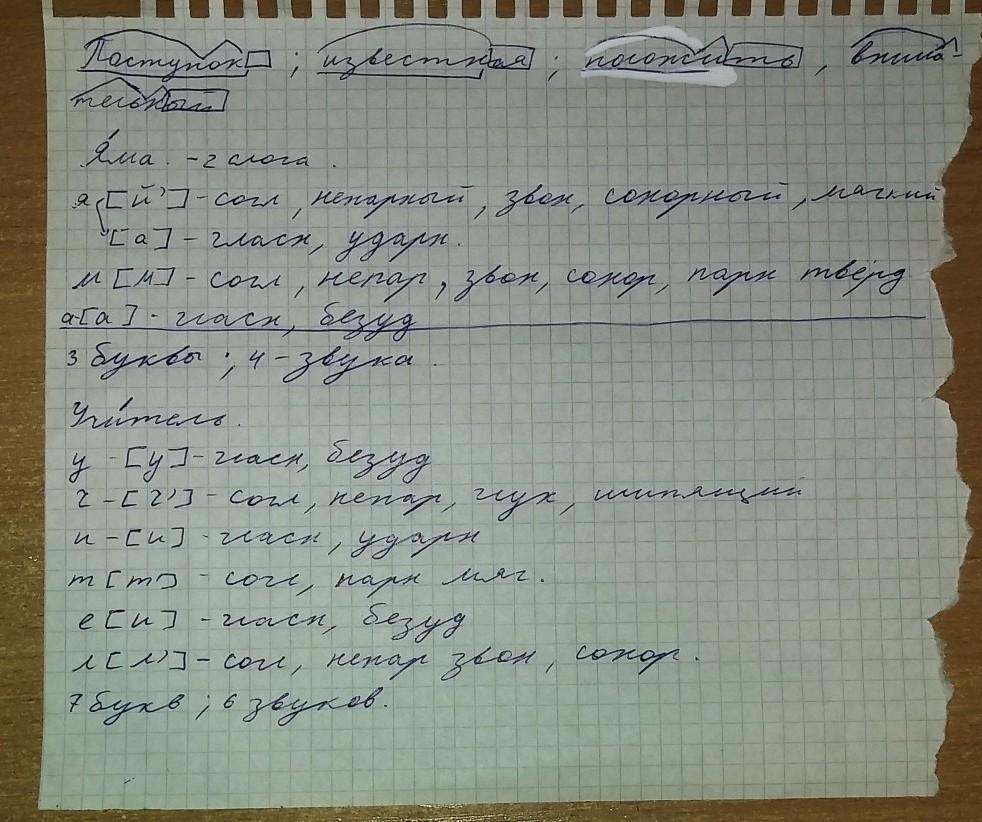 Поступок ; известная ; положить , внима-
тельный
Я́ма. - 2 слога.
я [й'] - согл, непарный, звон, сонорный, мягкий
[а] - гласн, ударн.
м [м] - согл, непар, звон, сонор, парн твёрд
а [а] - гласн, безуд
3 буквы ; 4 - звука.
Учи́тель.
у - [у] - гласн, безуд
ч - [ч'] - согл, непар, глух, шипящий
и - [и] - гласн, ударн
т [т'] - согл, парн мяг.
е [и] - гласн, безуд
л [л'] - согл, непар звон, сонор.
7 букв ; 6 звуков.